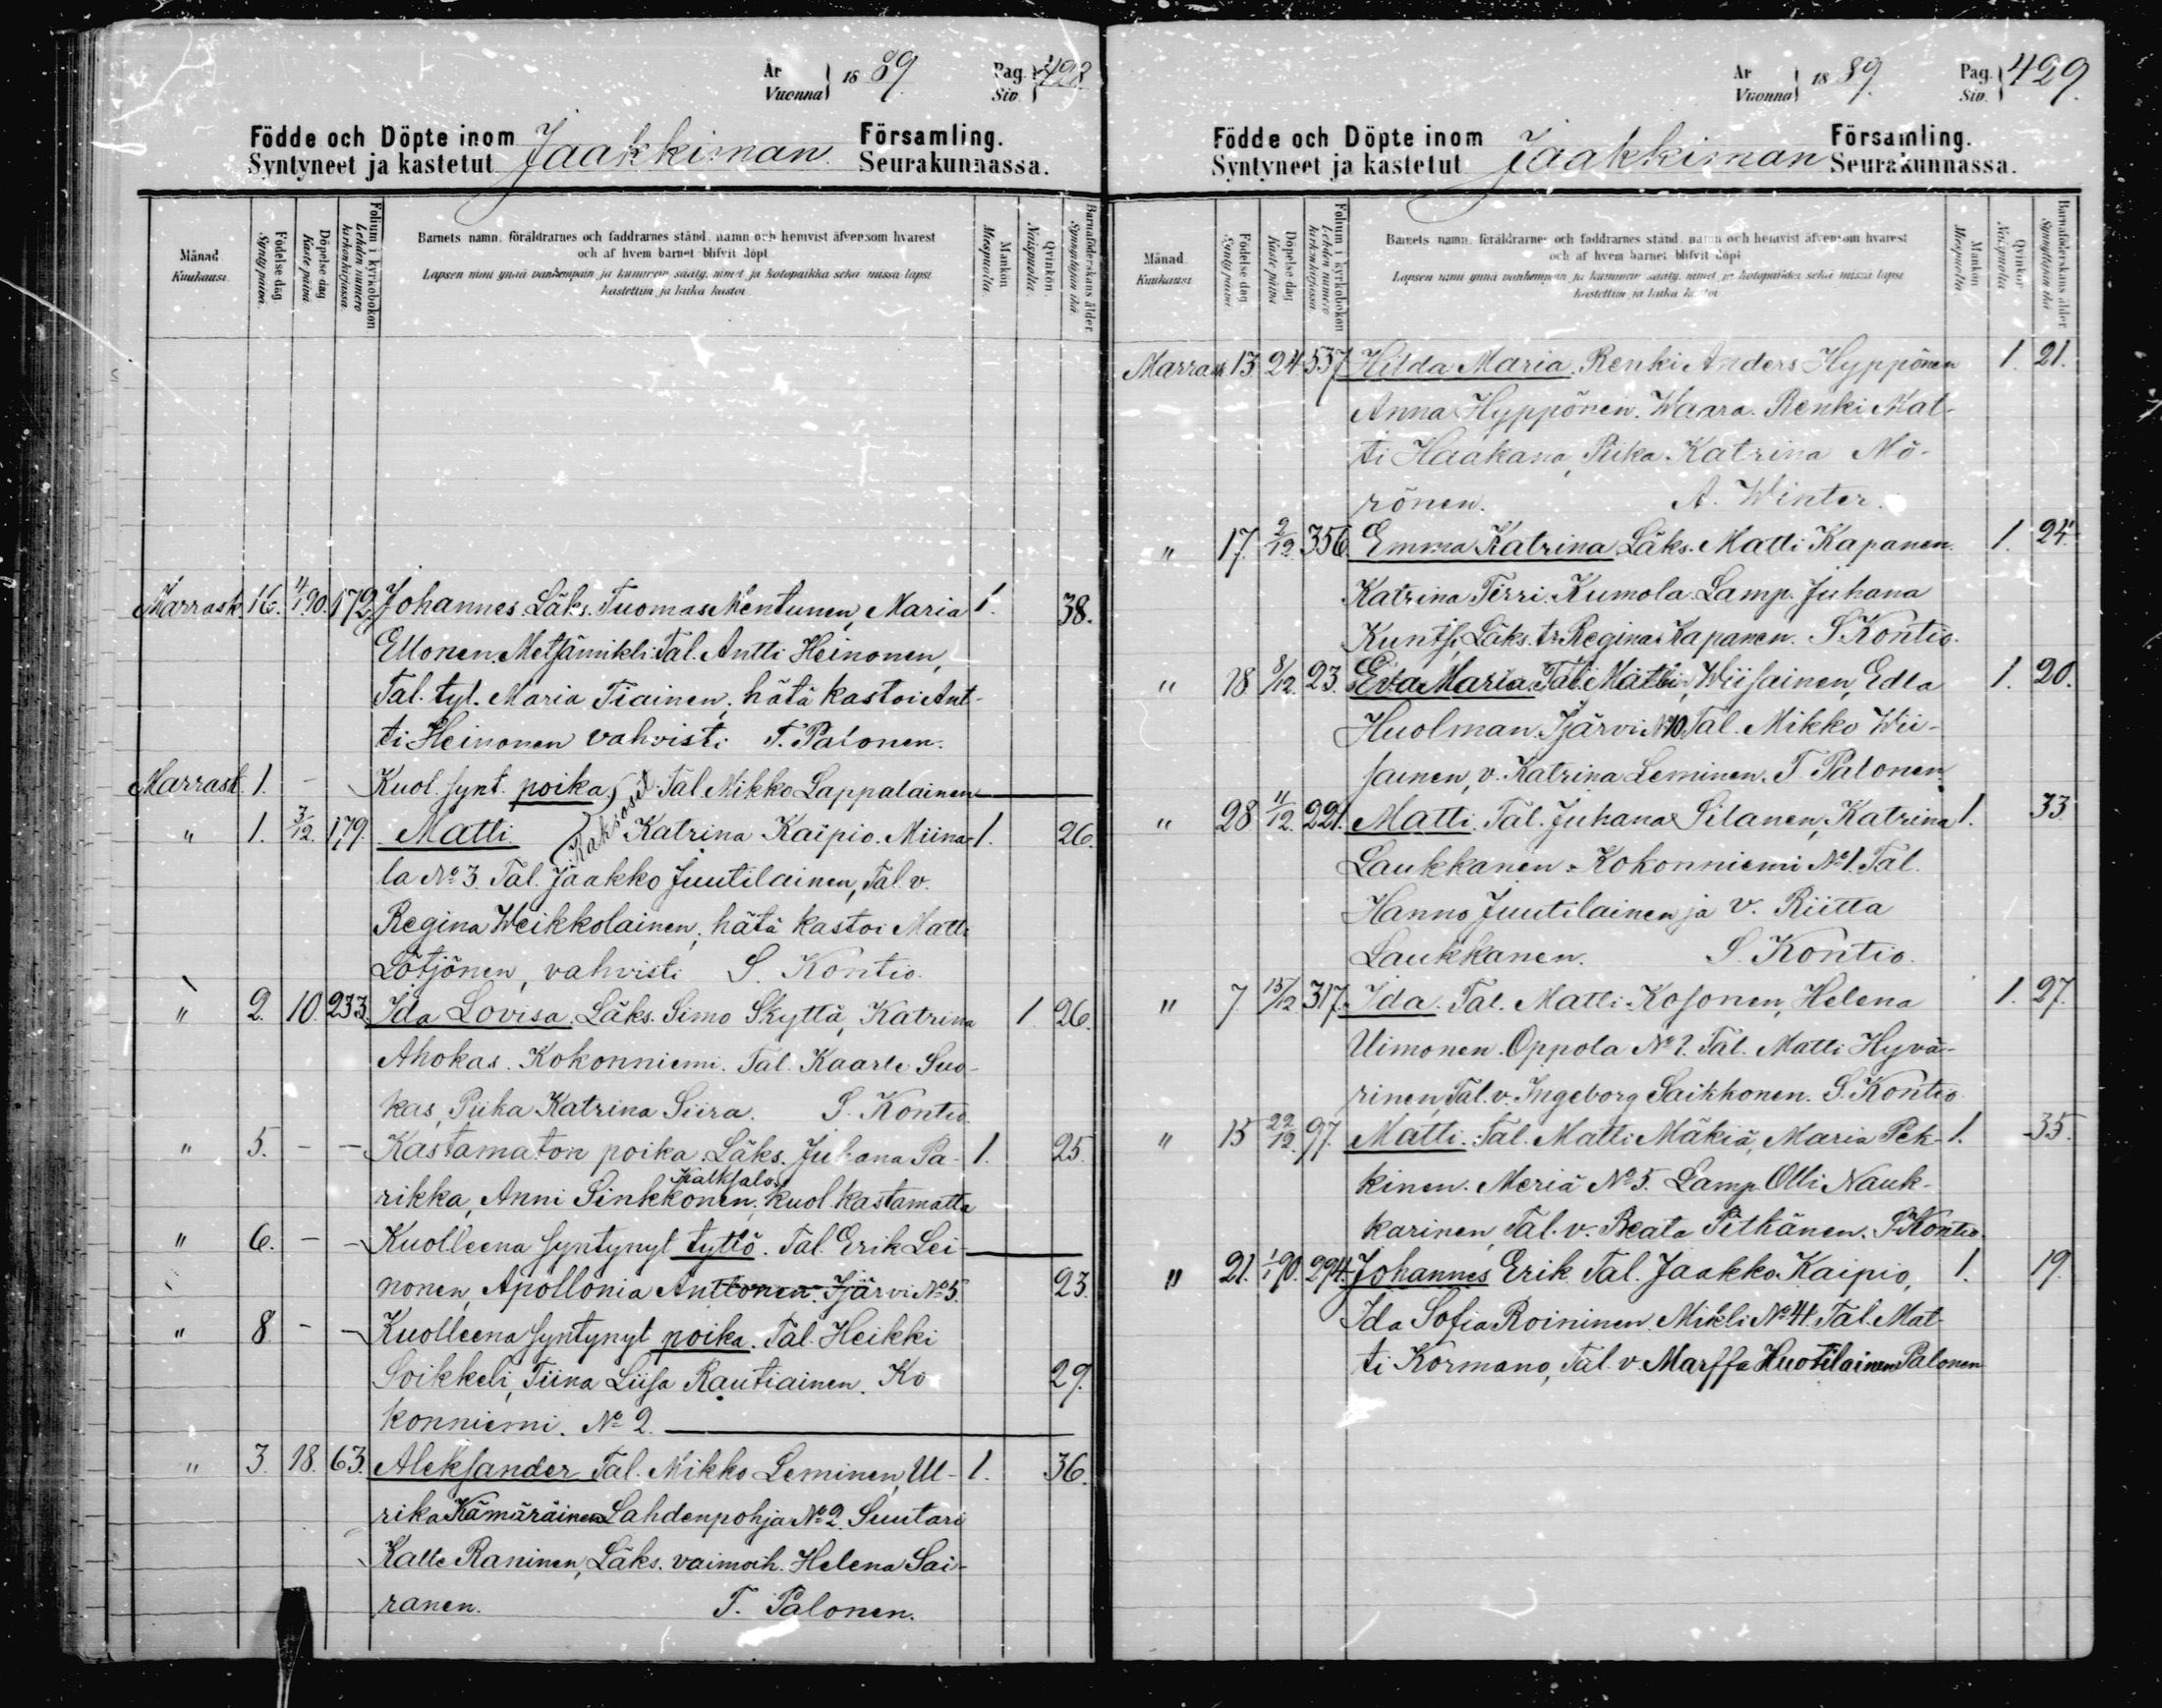 År
Vuonna} 1889. Pag.
Siv. }428.
Födde och Döpte inom Jaakkiman Församling.
Syntyneet ja kastetut Seurakunnassa.
Månad
Kuukausi.
Födelse dag
Synty päivä.
Döpelse dag
Kaste päivä
Folium i kyrkoboken
Lehden numero
kirkonkirjassa.
Barnets namn, föräldrarnes och faddrarnes stånd, namn och hemvist äfvensom hvarest
och af hvem barnet blifvit döpt
Lapsen nimi ynnä vanhempain ja kummein sääty, nimet ja kotopaikka sekä missä lapsi
kastettiin ja kuka kastoi.
Mankön
Miespuolia.
Qvinkön.
Naispuolia.
Barnaföderskans ålder.
Synnyttäjän ikä.
Marrask. 16. 4/1 90. 172. Johannes. Läks. Tuomas Mentunen, Maria 1. 38.
Ellonen. Metsämikli. Tal. Antti Heinonen,
Tal. tyt. Maria Tiainen, hätä kastoi Ant-
ti Heinonen vahvisti T. Palonen.
Marrask. 1. - - Kuol. synt. poika, Tal Mikko Lappalainen
Kaksoset
" 1. 3/12. 179. Matti. Katrina Kaipio. Miina- 1. 26.
la No 3. Tal. Jaakko Juutilainen, Tal. v.
Regina Weikkolainen, hätä kastoi Matti
Lötjönen, vahvisti S. Kontio.
" 2. 10. 233. Ida Lovisa. Läks. Simo Skyttä, Katrina 1 26.
Ahokas. Kokonniemi. Tal. Kaarle Suo-
kas, Piika Katrina Siira. S. Kontio.
" 5. - - Kastamaton poika. Läks. Juhana Pa- 1. 25.
Kalksalo.
rikka, Anni Sinkkonen, kuol. kastamatta
" 6. - - Kuolleena syntynyt tyttö. Tal. Erik Lei-
nonen, Apollonia Anttonen. Ijärvi No 5. 23.
" 8. - - Kuolleena syntynyt poika. Tal. Heikki
Soikkeli, Tiina Liisa Rautiainen. Ko 29.
konniemi. No 2.
" 3. 18. 63. Aleksander Tal. Mikko Leminen, Ul- 1. 36.
rika Kämäräinen Lahdenpohja No 2. Suutari
Kalle Raninen, Läks. vaimoih. Helena Sai-
ranen. T. Palonen.
År
Vuonna} 1889. Pag.
Siv. }429.
Födde och Döpte inom Jaakkiman Församling.
Syntyneet ja kastetut Seurakunnassa.
Månad.
Kuukausi
Födelse dag
Synty päivä
Döpelse dag
Kaste päivä
Folium i kyrkoboken
Lehden numero
kirkonkirjassa.
Barnets namn, föräldrarnes och faddrarnes stånd, namn och hemvist äfvensom hvarest
och af hvem barnet blifvit döpt
Lapsen nimi ynnä vanhempain ja kummein sääty, nimet ja kotopaikka sekä missä lapsi
kastettiin ja kuka kastoi
Mankön
Miespuolia
Qvinkön
Naispuolia
Barnaföderskans ålder
Synnyttäjän ikä
Marrask 13 24 537 Hilda Maria. Renki Anders Hyppönen 1. 21.
Anna Hyppönen. Waara. Renki Mat-
ti Haakana, Piika Katrina Mö-
rönen. A. Winter.
" 17. 2/12. 356. Emma Katrina Läks. Matti Kapanen. 1. 24.
Katrina Tirri. Kumola. Lamp. Juhana
Kuntsi, Läks. tr Regina Kapanen. S. Kontio.
" 18 8/12. 23. Eva Maria. Tal. Matti Wiisainen, Edla 1. 20.
Huolman. Ijärvi No 10. Tal. Mikko Wii-
sainen, v. Katrina Leminen. T. Palonen.
" 28 11/12. 221. Matti. Tal. Juhana Silanen, Katrina 1. 33
Laukkanen. Kokonniemi No 1. Tal.
Hanno Juutilainen ja v. Riitta
Laukkanen. S. Kontio.
" 7. 15/12 317. Ida. Tal. Matti Kosonen, Helena 1. 27.
Uimonen. Oppola No 2. Tal. Matti Hyvä-
rinen, Tal. v. Ingeborg Saikkonen. S. Kontio.
" 15 22/12. 97. Matti. Tal. Matti Mäkiä, Maria Pek- 1. 35.
kinen. Meriä No 5. Lamp. Olli Nauk-
karinen, Tal. v. Beata Pitkänen. S. Kontio.
" 21. 1/1 90. 294. Johannes Erik Tal. Jaakko Kaipio, 1. 19.
Ida Sofia Roininen. Mikli No 4. Tal. Mat-
ti Kormano, Tal. v. Marffa Huotilainen Palonen